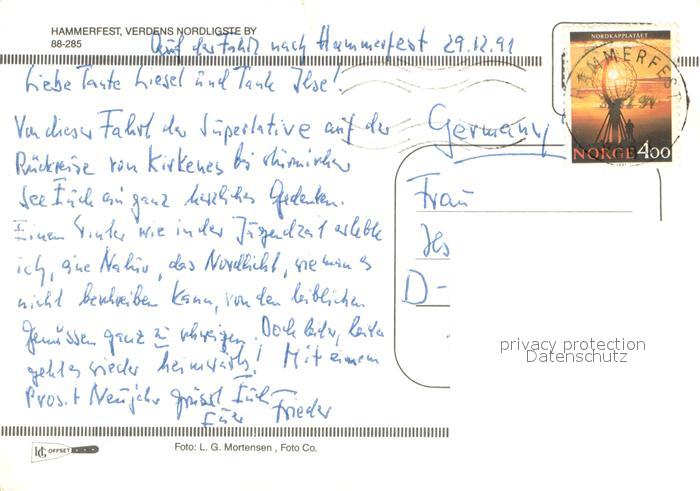 HAMMERFEST, VERDENS NORDLIGSTE BY
88-285
Auf der Fahrt nach Hammerfest 29.12.91
Liebe Tante Liesel und Tante Ilse!
Von dieser Fahrt der Superlative auf der
Rückreise von Kirkenes bei stürmischer
See Euch ein ganz herzliches Gedenken.
Einen Winter wie in der Jugendzeit erlebte
ich, eine Natur, das Nordlicht, wie man es
nicht beschreiben kann, von den leiblichen
Genüssen ganz zu schweigen. Doch leider, leider
geht es wieder heimwärts! Mit einem
Prosit Neujahr grüsst Euch
Euer Frieder
Germany
Frau
Ils
D-
NORDKAPPLATÅET
HAMMERFEST
NORGE 4.00
privacy protection
Datenschutz
OFFSET
Foto: L. G. Mortensen , Foto Co.